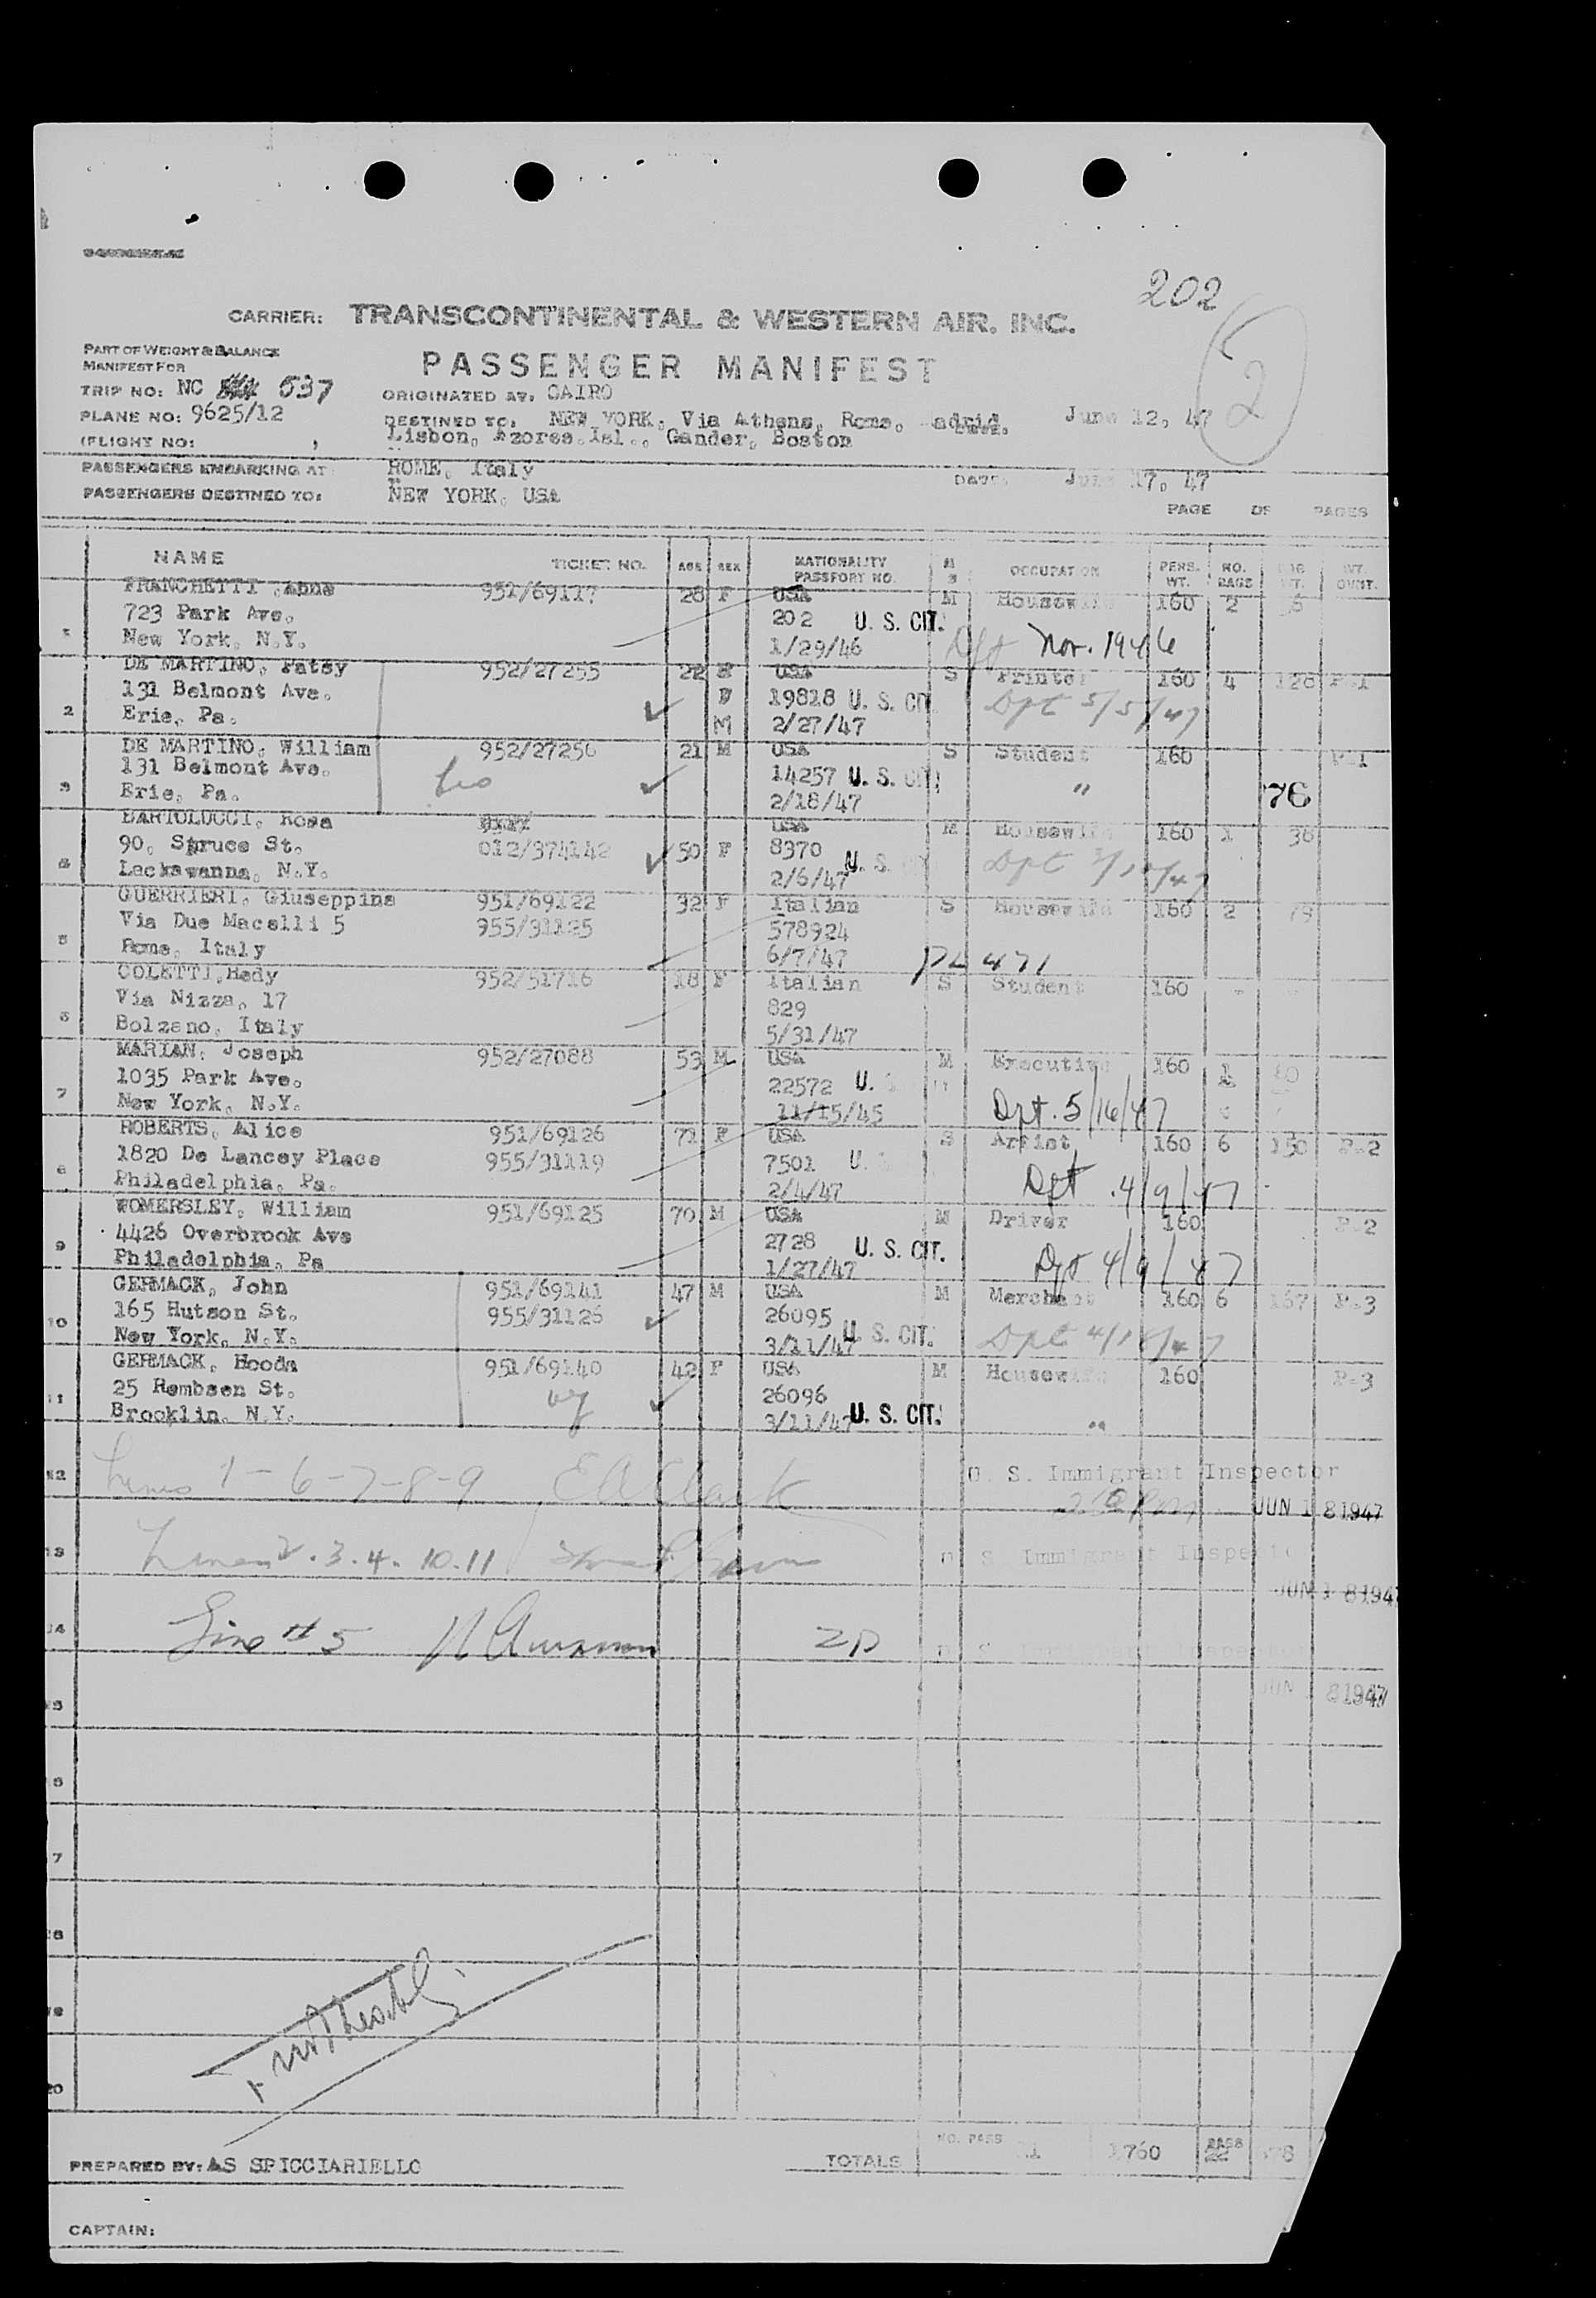 202
CARRIER: TRANSCONTINENTAL & WESTERN AIR. INC.
PART OF WEIGHT & BALANCE
MANIFEST FOR
PASSENGER MANIFEST
2
TRIP NO: NC 537
ORIGINATED AT: CAIRO
PLANE NO: 9625/12
DESTINED TO: NEW YORK, Via Athens, Rome, adrid, June 12, 47
(FLIGHT NO: ,
Lisbon, Azores.Isl.., Gander, Boston
PASSENGERS EMBARKING AT: ROME, Italy DATE: June 17, 47
PASSENGERS DESTINED TO: NEW YORK, USA
PAGE OF PAGES
NAME TICKET NO. AGE SEX NATIONALITY PASSPORT NO. M S OCCUPATION PERS. WT. NO. BAGS WT. WT. OVWT.
FRANCHETTI ,Anne 951/69117 28 F USA M Housewife 160 2
723 Park Ave. 202 U. S. CIT.
New York, N.Y. 1/29/46 Nov. 1946
DE MARTINO, Patsy 952/27255 22 USA S Printer 160 4 128 P-1
131 Belmont Ave. 19818 U. S. CIT
2 Erie, Pa. M 2/27/47 Dpt 5/5/47
DE MARTINO, William 952/27256 21 M USA S Student 160 P-1
131 Belmont Ave. 14257 U. S. CIT
3 Erie, Pa. 2/18/47 " 76
BARTOLUCCI, Rosa USA M Housewife 160 1 38
90, Spruce St. 012/374142 50 F 8370 U. S.
Lackawanna, N.Y. 2/6/47 Dpt
GUERRIERI, Giuseppina 951/69122 32 F Italian S Housewife 160 2 79
Via Due Macelli 5 955/31125 578924
5 Rome, Italy 6/7/47 PL 471
COLETTI,Hedy 952/51716 18 F Italian S Student 160 -
Via Nizza, 17 829
Bolzano, Italy 5/31/47
MARIAN, Joseph 952/27088 53 M USA M Executive 160 1
1035 Park Ave. 22572 U.
7 New York, N.Y. 11/15/45 Dpt. 5/16/47
ROBERTS, Alice 951/69126 71 F USA S Artist 160 6 150 P-2
1820 De Lancey Place 955/31119 7501 U.
8 Philadelphia, Pa. 2/4/47 Dpt .4/9/47
WOMERSLEY, William 951/69125 70 M USA M Driver 160 P-2
4426 Overbrook Ave 2728 U. S. CIT.
9 Philadelphia, Pa 1/27/47 Dpt 4/9/47
GERMACK, John 951/69141 47 M USA M Merchant 160 6 167 P-3
165 Hutson St. 955/31126 26095
10 New York, N.Y. 3/11/47 U. S. CIT. Dpt
GERMACK, Hooda 951/69140 42 F USA M Housewife 160 P-3
25 Rembsen St. 26096
11 Brooklin, N.Y. 3/11/47 U. S. CIT. "
12 Lines 1-6-7-8-9 E A Clark U. S. Immigrant Inspector
JUN 18 1947
13 Lines 2.3.4.10.11 S. Immigrant Inspector
JUN 18 194
14 Line # 5
JUN 81947
20
PREPARED BY: AS SPICCIARIELLO
TOTALS NO. PASS 11 1760
CAPTAIN: